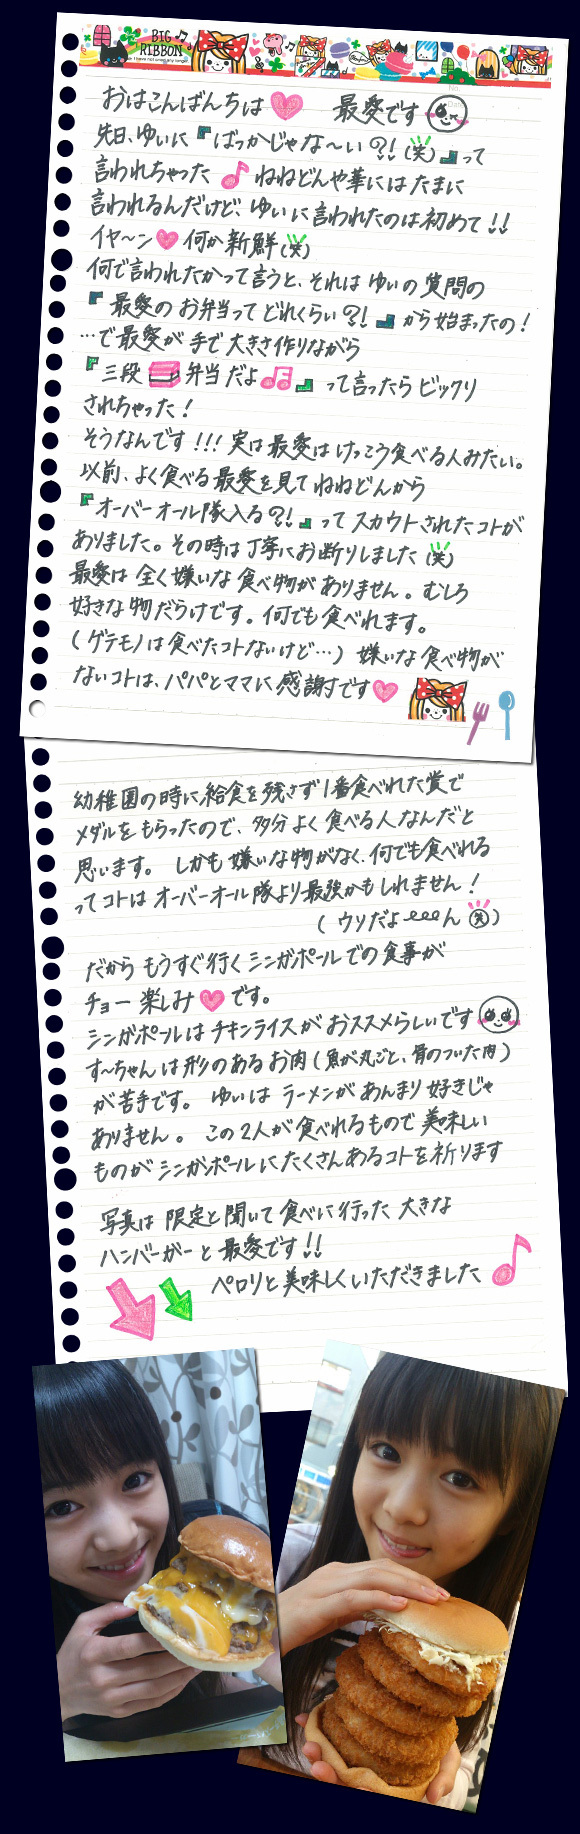 BIG
RIBBON
I have not used any longer.
No.
Date
おはこんばんちは 最愛です
先日、ゆいに『ばっかじゃな〜い?!(笑)』って
言われちゃった♪ねねどんや華にはたまに
言われるんだけど、ゆいに言われたのは初めて!!
イヤ〜ン♥何か新鮮(笑)
何で言われたかって言うと、それは ゆいの質問の
『最愛のお弁当ってどれくらい?!』から始まったの!
…で最愛が手で大きさ作りながら
『三段 弁当だよ♫』って言ったらビックリ
されちゃった!
そうなんです!!!実は最愛はけっこう食べる人みたい。
以前、よく食べる最愛を見てねねどんから
『オーバーオール隊入る?!』ってスカウトされたコトが
ありました。その時は丁寧にお断りしました(笑)
最愛は全く嫌いな食べ物がありません。むしろ
好きな物だらけです。何でも食べれます。
(ゲテモノは食べたコトないけど…)嫌いな食べ物が
ないコトは、パパとママに感謝です♥
幼稚園の時に給食を残さず1番食べれた賞で
メダルをもらったので、多分よく食べる人なんだと
思います。しかも嫌いな物がなく、何でも食べれる
ってコトはオーバーオール隊より最強かもしれません!
(ウソだよ〜ん(笑))
だからもうすぐ行くシンガポールでの食事が
チョー楽しみ♥です。
シンガポールはチキンライスがおススメらしいです
す〜ちゃんは形のあるお肉(魚が丸ごと、骨のついた肉)
が苦手です。ゆいはラーメンがあんまり好きじゃ
ありません。この2人が食べれるもので美味しい
ものがシンガポールにたくさんあるコトを祈ります
写真は限定と聞いて食べに行った大きな
ハンバーガーと最愛です!!
ペロリと美味しくいただきました♪